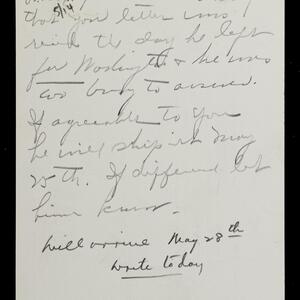 5/14
that you letter was
read the day he left
for Washington & he was
too busy to answer.
If agreeable to you
he will ship it May
25th. If different let
him know.
Will arrive May 28th
write today